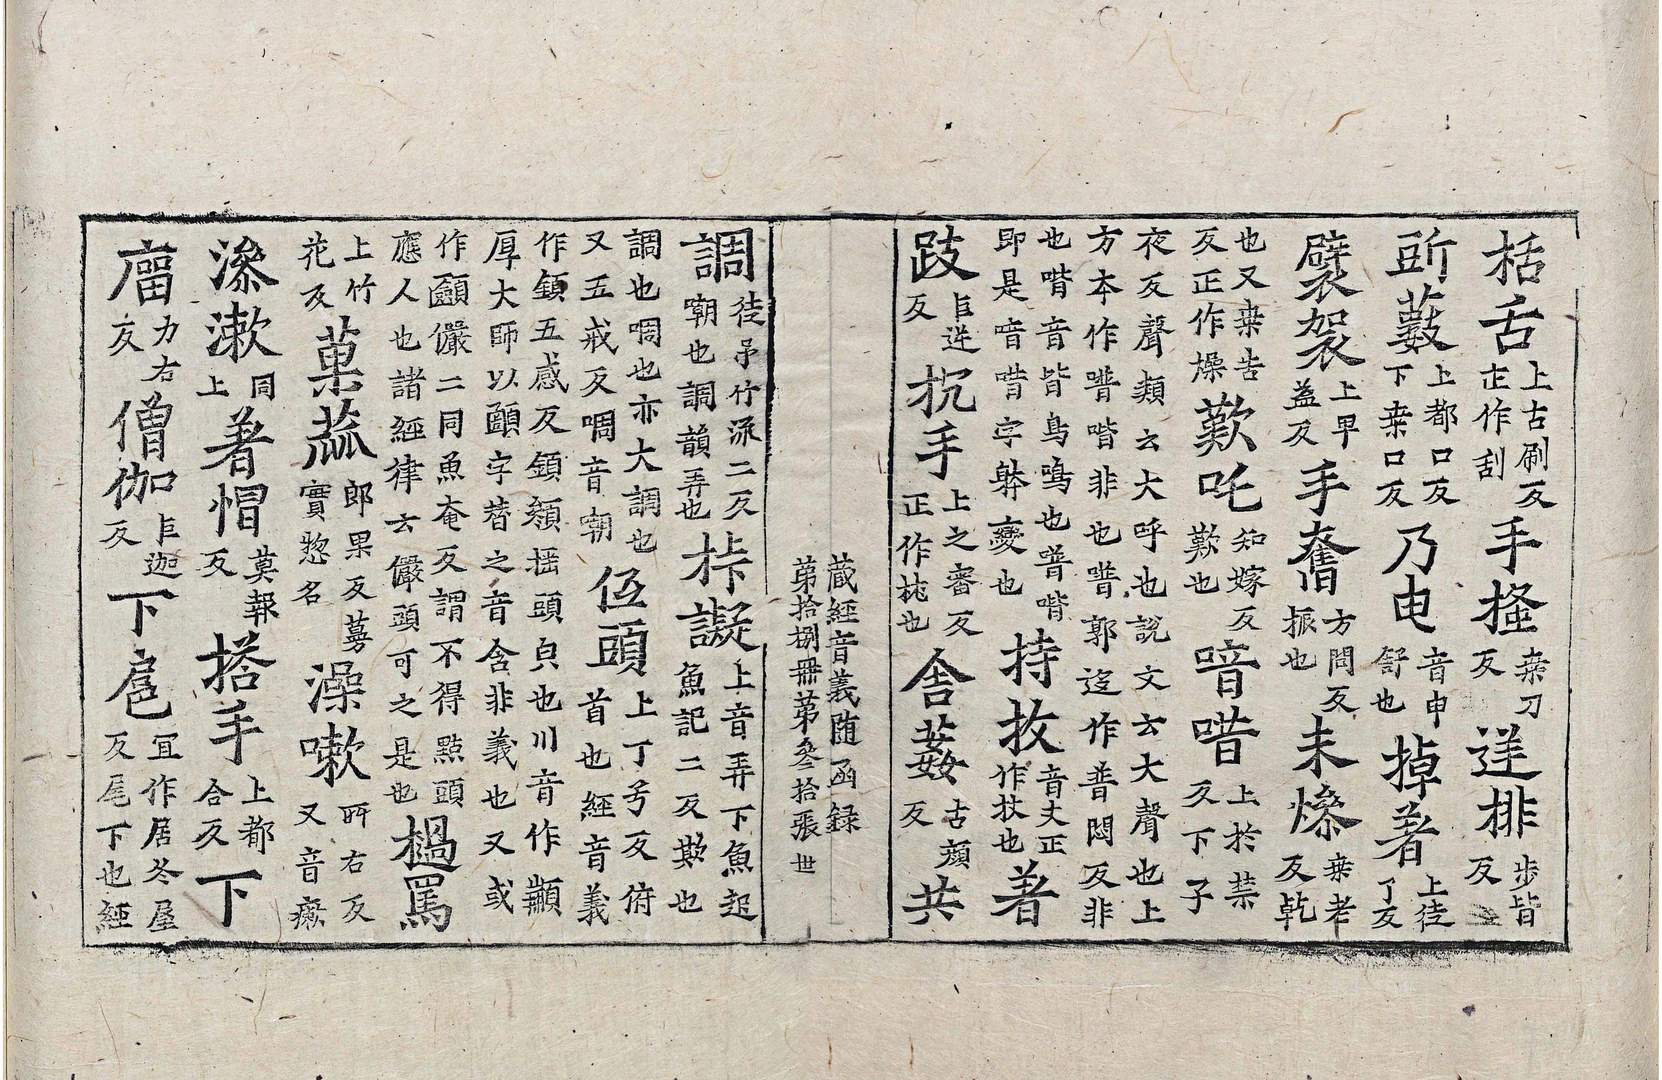 栝舌上古刷反正作刮手搔桒刀反逆排步皆反
㪷藪上都口反下桒口反乃电音申舒也掉著上徒了反
襞袈上早益反手奮方問反振也未燥桒老反乾
也又桒告反正作燥歎吒知嫁反歎也喑唶上於禁反下子
夜反聲類云大呼也說文云大聲也上方夲作噆喈非也噆郭迻作普悶反非
也喈音皆鳥鳴也噆喈即是喑唶字躰變也持杖音丈正作杖也著
跂巨逆反抌手上之審反正作抌也舍姦古顔反共
藏經音義随函録
苐拾捌冊苐叄拾張 世
調徒弔竹泳二反嘲也調韻弄也㭓譺上音弄下魚起魚記二反欺也
調也啁也亦大調也又五戒反啁音嘲低頭上丁兮反俯首也經音義
作顉五感反顉纇揺頭皃也川音作顲厚大師以頤字替之音含非義也又或
作顩儼二同魚奄反謂不得㸃頭應人也諸經律云儼頭可之是也檛罵
上竹花反菓蓏郎果反蔓實惣名澡嗽所右反又音瘷
㵕漱同上著帽莫報反搭手上都合反下
廇力右反僧伽巨迦反下㞑冝作居冬屋反尾下也經